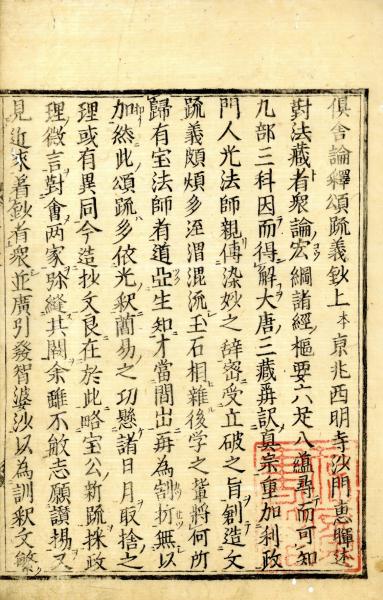 俱舍論釋頌疏義鈔上本 京兆西明寺沙門惠暉述
對法藏者衆論宏綱諸經樞要六足八蘊尋而可知
九部三科因而得解大唐三藏再訳真宗重加利政
門人光法師親傳染妙之辞密受立破之旨創造文
疏義頗煩多涇渭混流玉石相雜後学之輩將何所
歸有宝法師者道亞生知才當間出再為割折無以
加然此頌疏多依光釈蕳易之功懸諸日月取捨之
理或有異同今造抄文良在於此略宝公新疏採政
理微言對會两家弥縫其闕余雖不敏志願讃揚又
見近来著鈔者衆並廣引發智婆沙以為訓釈文繁